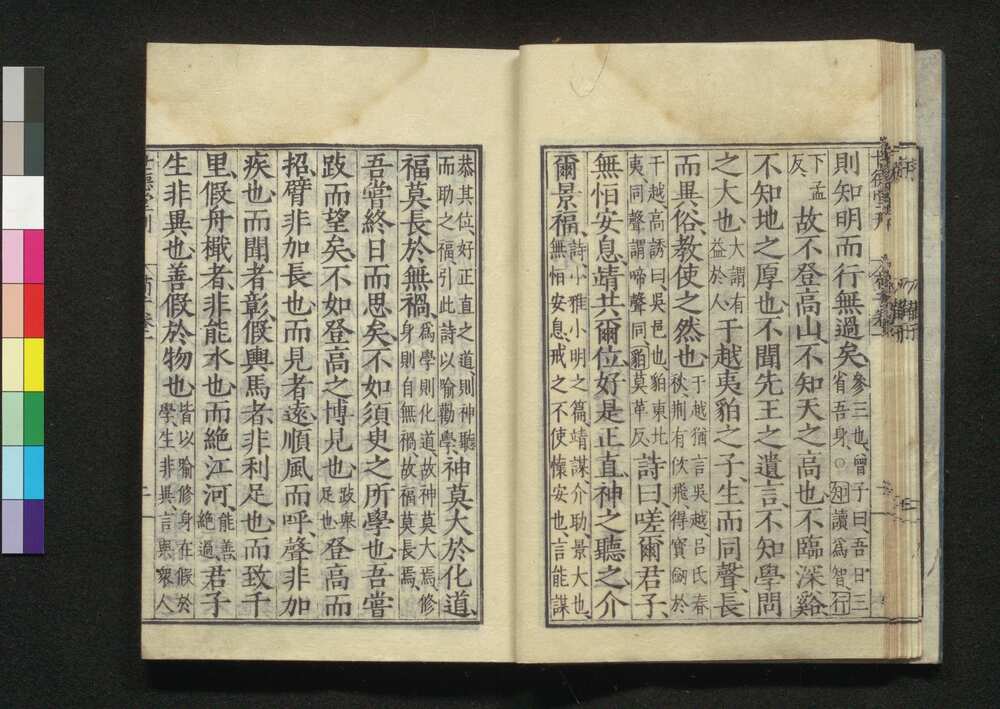 則知明而行無過矣參三也、曾子曰、吾日三省吾身、○知讀爲智、行
下孟反、故不登高山、不知天之高也、不臨深谿、
不知地之厚也、不聞先王之遺言、不知學問
之大也、大謂有益於人、于越夷貉之子、生而同聲、長
而異俗、教使之然也、于越猶言吳越、呂氏春秋、荆有佽飛、得寶劒於
干越、高誘曰、吳邑也、貉東北夷、同聲謂啼聲同、貉莫革反、詩曰、嗟爾君子、
無恒安息、靖共爾位、好是正直、神之聽之、介
爾景福、詩小雅小明之篇、靖謀、介助、景大也、無恒安息、戒之不使懷安也、言能謀
恭其位、好正直之道、則神聽而助之福、引此詩以喻勸學、神莫大於化道、
福莫長於無禍、爲學則化道、故神莫大焉、修身則自無禍、故福莫長焉、
吾嘗終日而思矣、不如須臾之所學也、吾嘗
跂而望矣、不如登高之博見也、跂舉足也、登高而
招、臂非加長也、而見者遠、順風而呼、聲非加
疾也、而聞者彰、假輿馬者、非利足也、而致千
里、假舟檝者、非能水也、而絶江河、能善、絶過、君子
生非異也、善假於物也、皆以喻修身在假於學、生非異、言與衆人